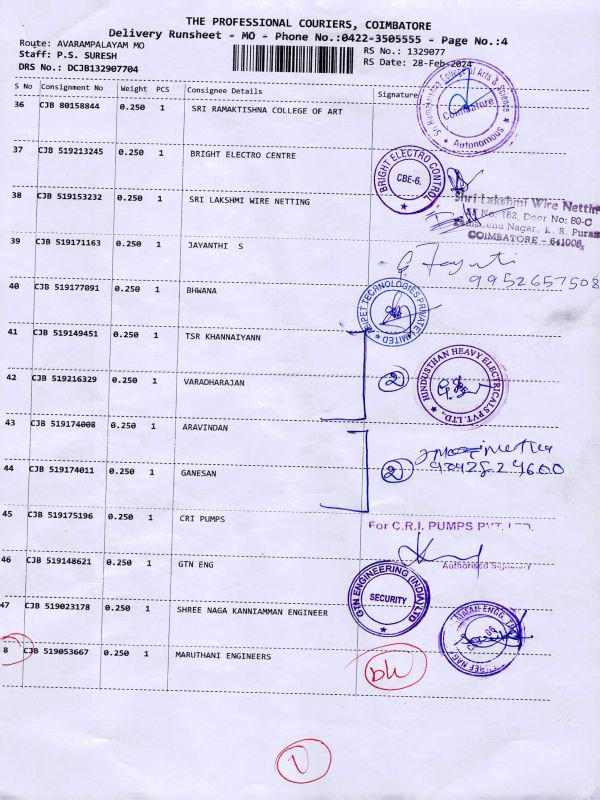 THE PROFESSIONAL COURIERS, COIMBATORE
Delivery Runsheet - MO - Phone No.:0422-3505555 - Page No.:4
Route: AVARAMPALAYAM MO
RS No.: 1329077
Staff: P.S. SURESH
RS Date: 28-Feb-2024
DRS No.: DCJB132907704
S No Consignment No Weight PCS Consignee Details Signature
36 CJB 80158844 0.250 1 SRI RAMAKTISHNA COLLEGE OF ART
College of Arts & Science
Coimbatore
★ Autonomous ★
37 CJB 519213245 0.250 1 BRIGHT ELECTRO CENTRE
BRIGHT ELECTRO CONTROL
CBE-6.
38 CJB 519153232 0.250 1 SRI LAKSHMI WIRE NETTING
Shri Lakshmi Wire Nettin
No: 162, Door No: 60-C
Nagar, K. R. Puram
COIMBATORE - 641006,
39 CJB 519171163 0.250 1 JAYANTHI S
9952657508
40 CJB 519177091 0.250 1 BHWANA
TECHNOLOGIES PRIVATE LIMITED
41 CJB 519149451 0.250 1 TSR KHANNAIYANN
42 CJB 519216329 0.250 1 VARADHARAJAN
2
HINDUSTHAN HEAVY ELECTRICALS PVT. LTD.
43 CJB 519174008 0.250 1 ARAVINDAN
44 CJB 519174011 0.250 1 GANESAN
2
45 CJB 519175196 0.250 1 CRI PUMPS
For C.R.I. PUMPS PVT. LTD.
Authorised Signatory
46 CJB 519148621 0.250 1 GTN ENG
GTN ENGINEERING (INDIA) LTD
SECURITY
47 CJB 519023178 0.250 1 SHREE NAGA KANNIAMMAN ENGINEER
8 CJB 519053667 0.250 1 MARUTHANI ENGINEERS